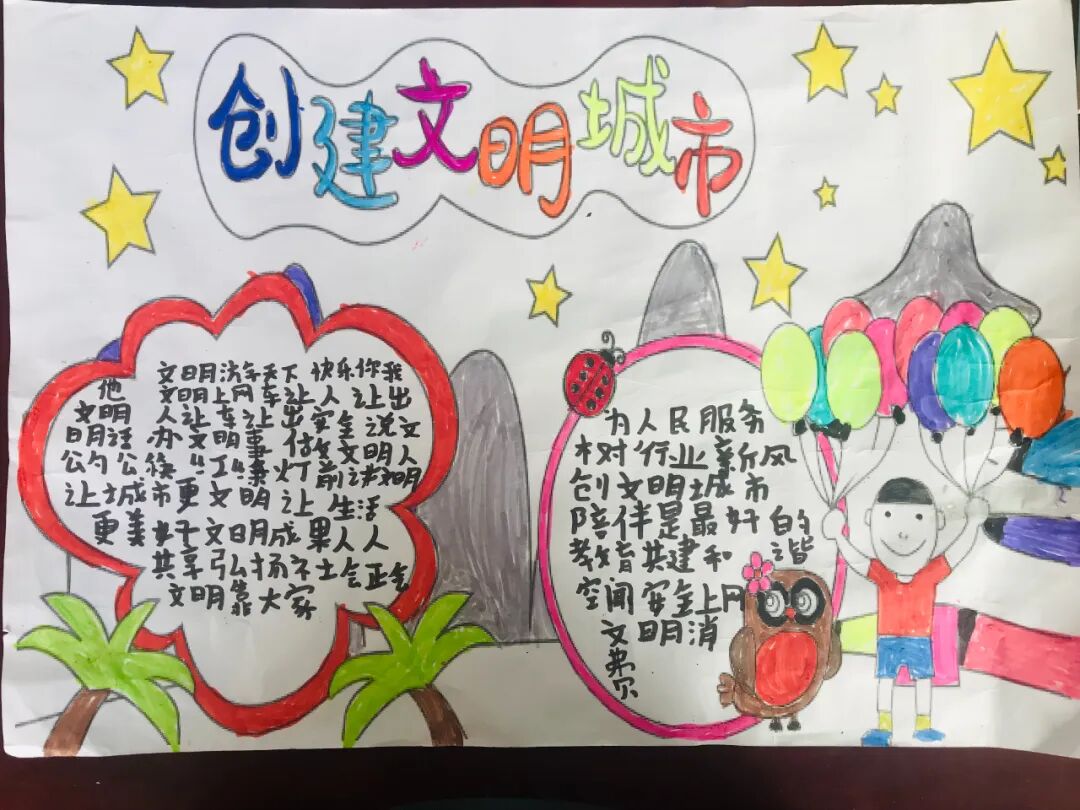 创建文明城市
文明浇天下 快乐你我
他 文明上网车让人 让出
文明 人让车让出安全 说文
明话 办文明事 做文明人
公约公德 灯前讲文明
让城市更文明 让 生活
更美好 文明成果人人
共享 弘扬社会正气
文明靠大家
为人民服务
树行业新风
创文明城市
陪伴是最好的
教育共建和谐
空间安全上网
文明消
费